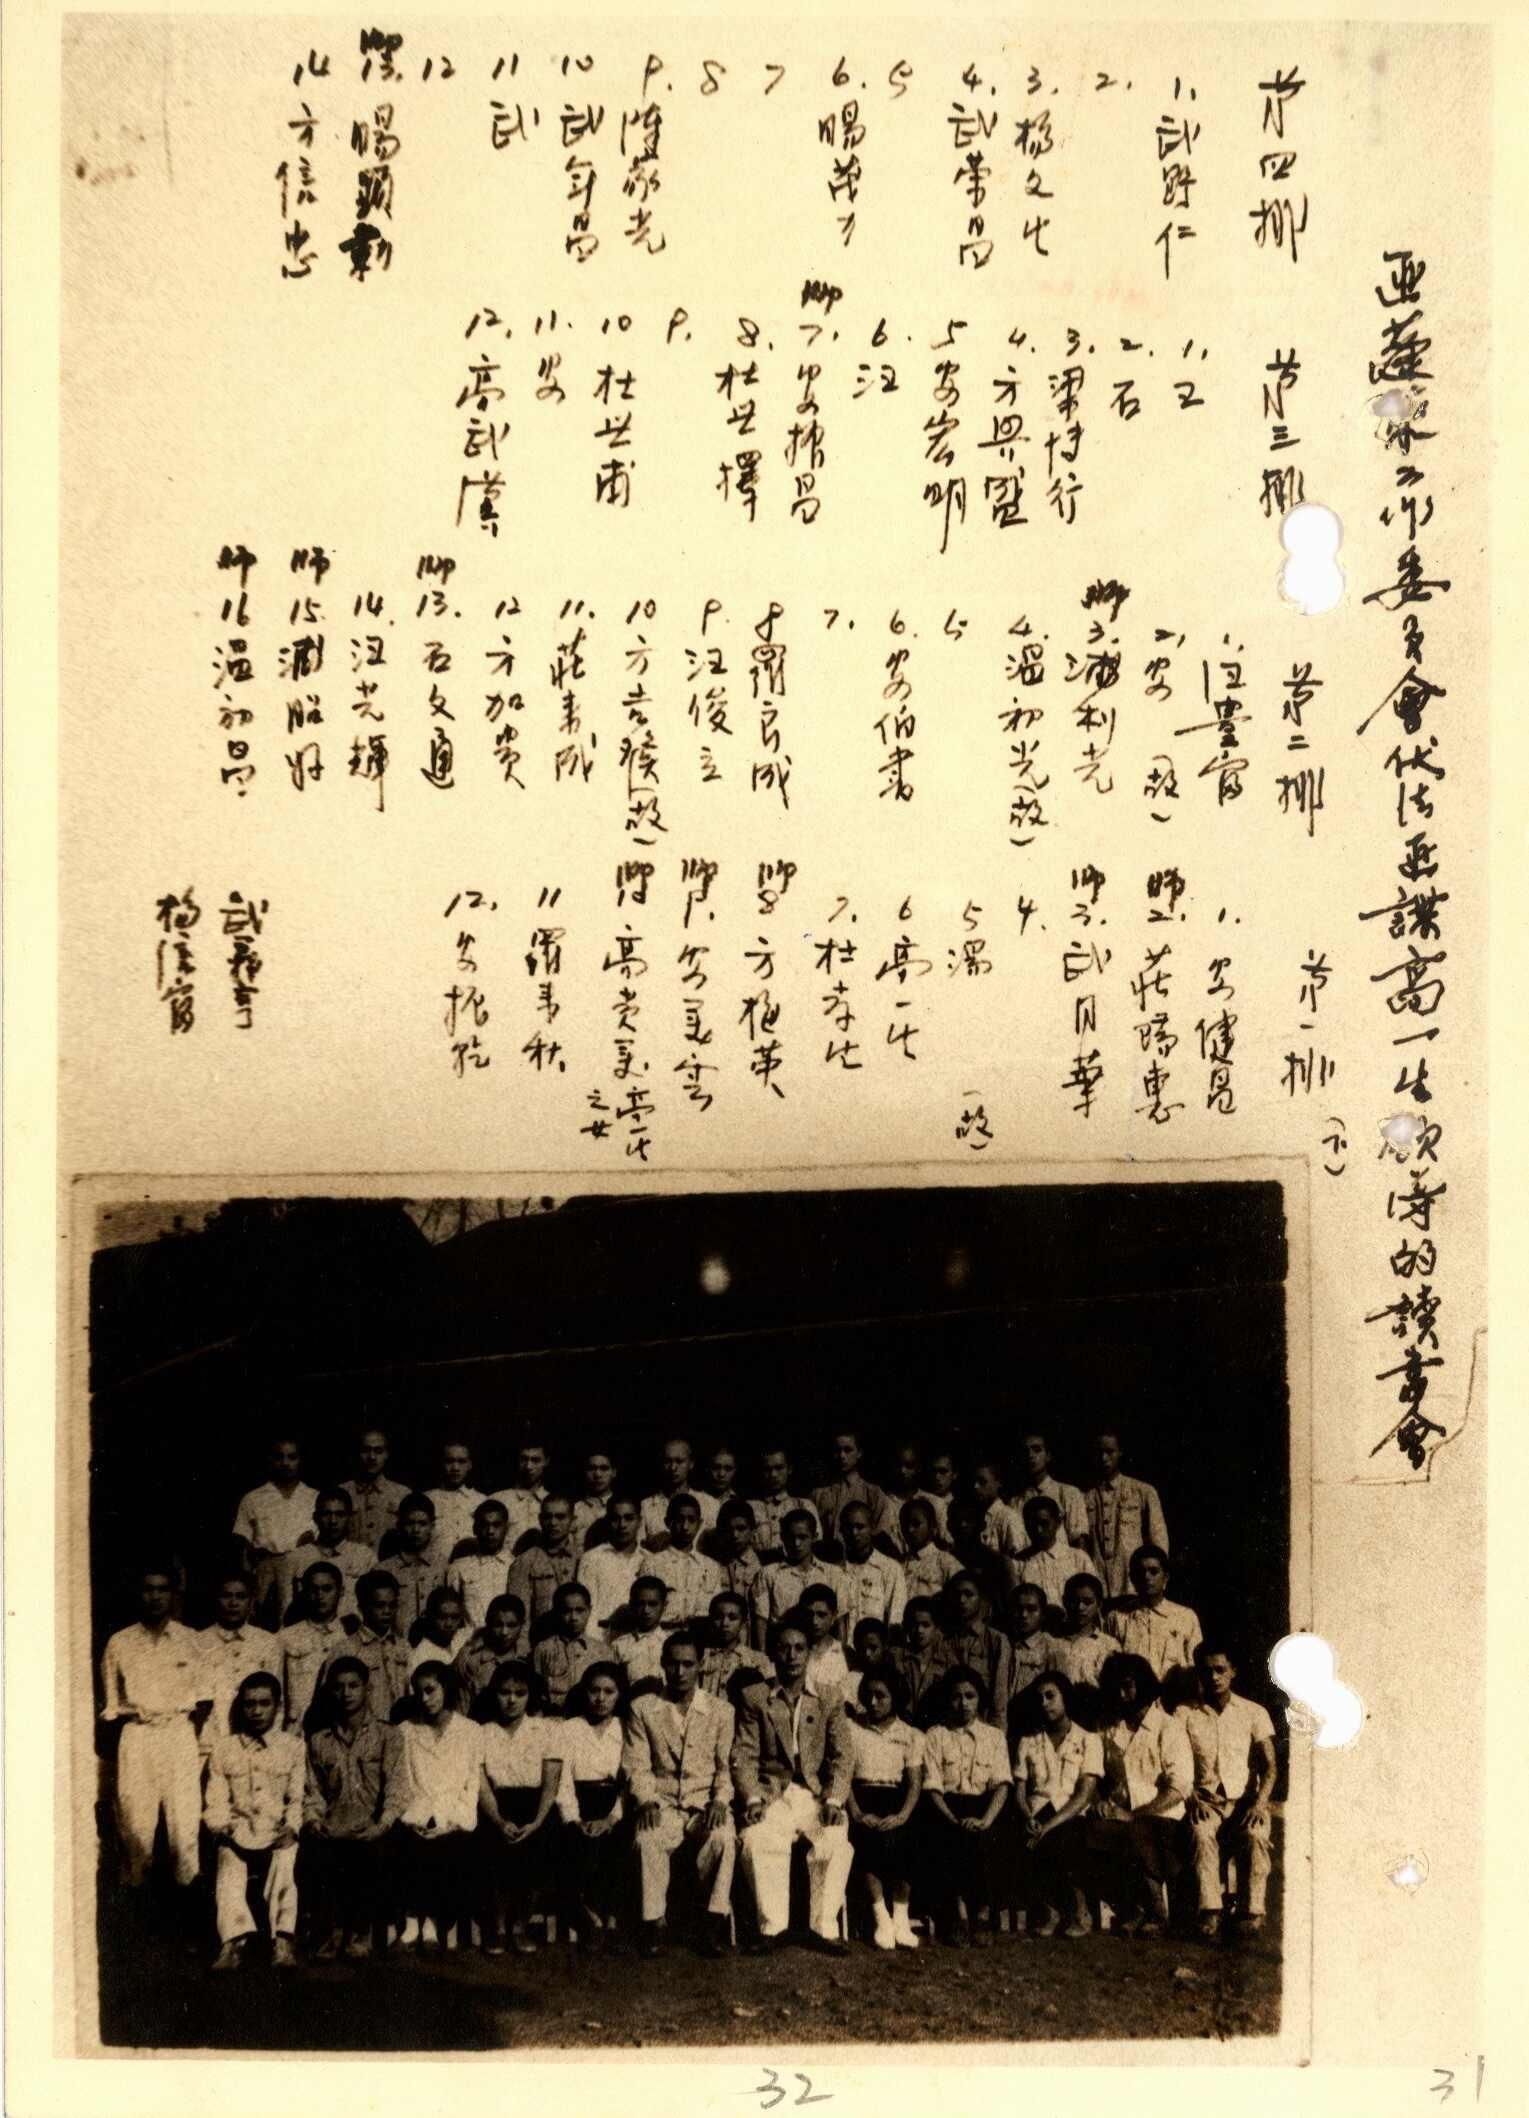 匪蓬萊工作委員會伏法匪諜高一生領導的讀書會
第四排
1. 武野仁
2.
3. 楊文生
4. 武榮昌
5
6. 暘茂
7
8
9. 陳永光
10 武年昌
11 武
12
師13. 暘顯彰
14 方信忠
第三排
1. 王
2. 石
3. 梁博行
4. 方興盛
5 安宏明
6. 汪
師7. 安振昌
8. 杜世擇
9.
10 杜世甫
11. 安
12. 高武漢
第二排
1. 汪豊富
2. 安 (故)
師3. 浦利光
4. 溫初光(故)
5
6. 安伯書
7.
8 羅良成
9. 汪俊立
10 方吉 (故)
11. 莊東成
12 方加貴
師13. 石文通
14. 汪光輝
師15. 浦昭好
師16 溫初昌
第一排 (下)
1. 安健昌
師2. 莊瑞惠
師3. 武月華
4.
5 湯 (故)
6 高一生
7. 杜孝生
師8 方梅英
師9. 安美雲
師10 高貴美 高一生之女
11 羅東秋
12. 安振
武
楊信富
32
31